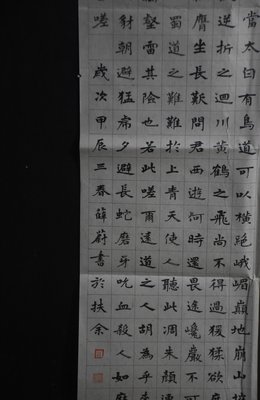 當太白有鳥道可以橫絕峨嵋巔地崩山摧
逆折之迴川黃鶴之飛尚不得過猨猱欲度
膺坐長歎問君西遊何時還畏途巉巖不
蜀道之難難於上青天使人聽此凋朱顏連
壑雷其險也若此嗟爾遠道之人胡為乎來
豺朝避猛虎夕避長蛇磨牙吮血殺人如麻
嗟 歲次甲辰三春薛蔚書於扶余